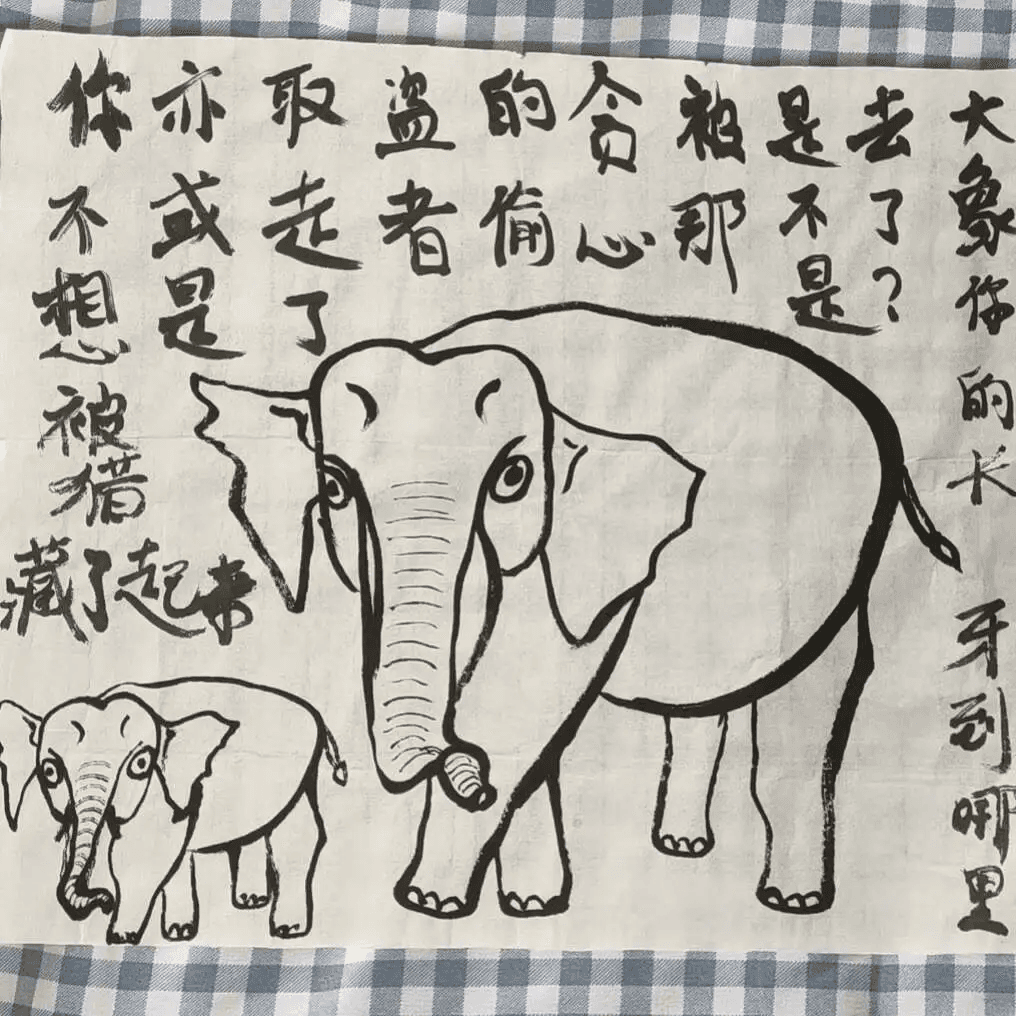 大象你的长牙到哪里
去了?
是不是
被那
贪心
的偷
盗者
取走了
亦或是
你不想被猎
藏了起来